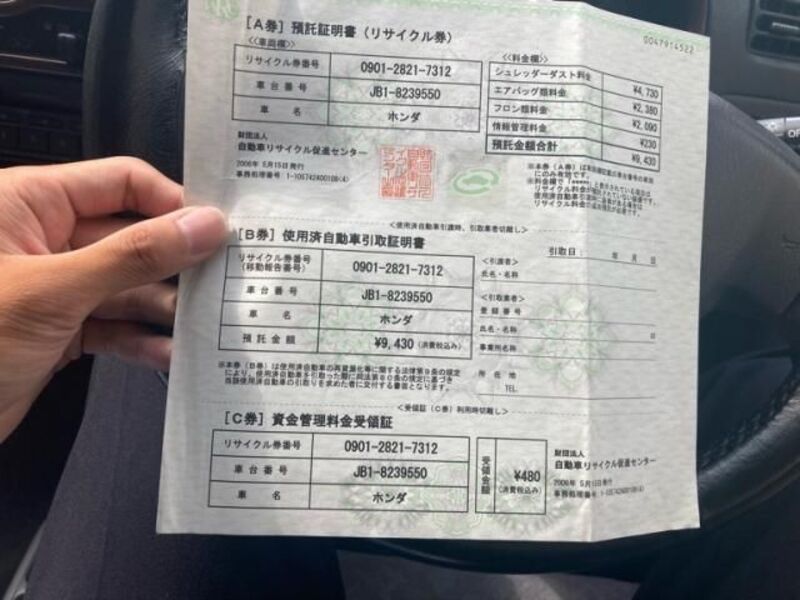 0047914522
[A券] 預託証明書(リサイクル券)
<車両欄>
リサイクル券番号 0901-2821-7312
車台番号 JB1-8239550
車名 ホンダ
<<料金欄>>
シュレッダーダスト料金 ¥4,730
エアバッグ類料金 ¥2,380
フロン類料金 ¥2,090
情報管理料金 ¥230
預託金額合計 ¥9,430
財団法人
自動車リサイクル促進センター
2006年 5月15日発行
<使用済自動車引渡時、引取業者切離し>
[B券] 使用済自動車引取証明書
引取日: 年 月 日
リサイクル券番号
(移動報告番号) 0901-2821-7312
車台番号 JB1-8239550
車名 ホンダ
預託金額 ¥9,430 (消費税込み)
<引渡者>
氏名・名称
<引取業者>
登録番号
氏名・名称
事業所名称
所在地
TEL
※本券(B券)は使用済自動車の再資源化等に関する法律第9条の規定
により、使用済自動車を引取った際に同法第80条の規定に基づき
当該使用済自動車の引取りを求めた者に交付する書面となります。
<受領証(C券)利用時切離し>
[C券] 資金管理料金受領証
リサイクル券番号 0901-2821-7312
車台番号 JB1-8239550
車名 ホンダ
受領金額 ¥480
(消費税込み)
財団法人
自動車リサイクル促進センター
2006年 5月15日発行